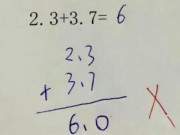 2.3+3.7= 6
2.3
+ 3.7
6.0